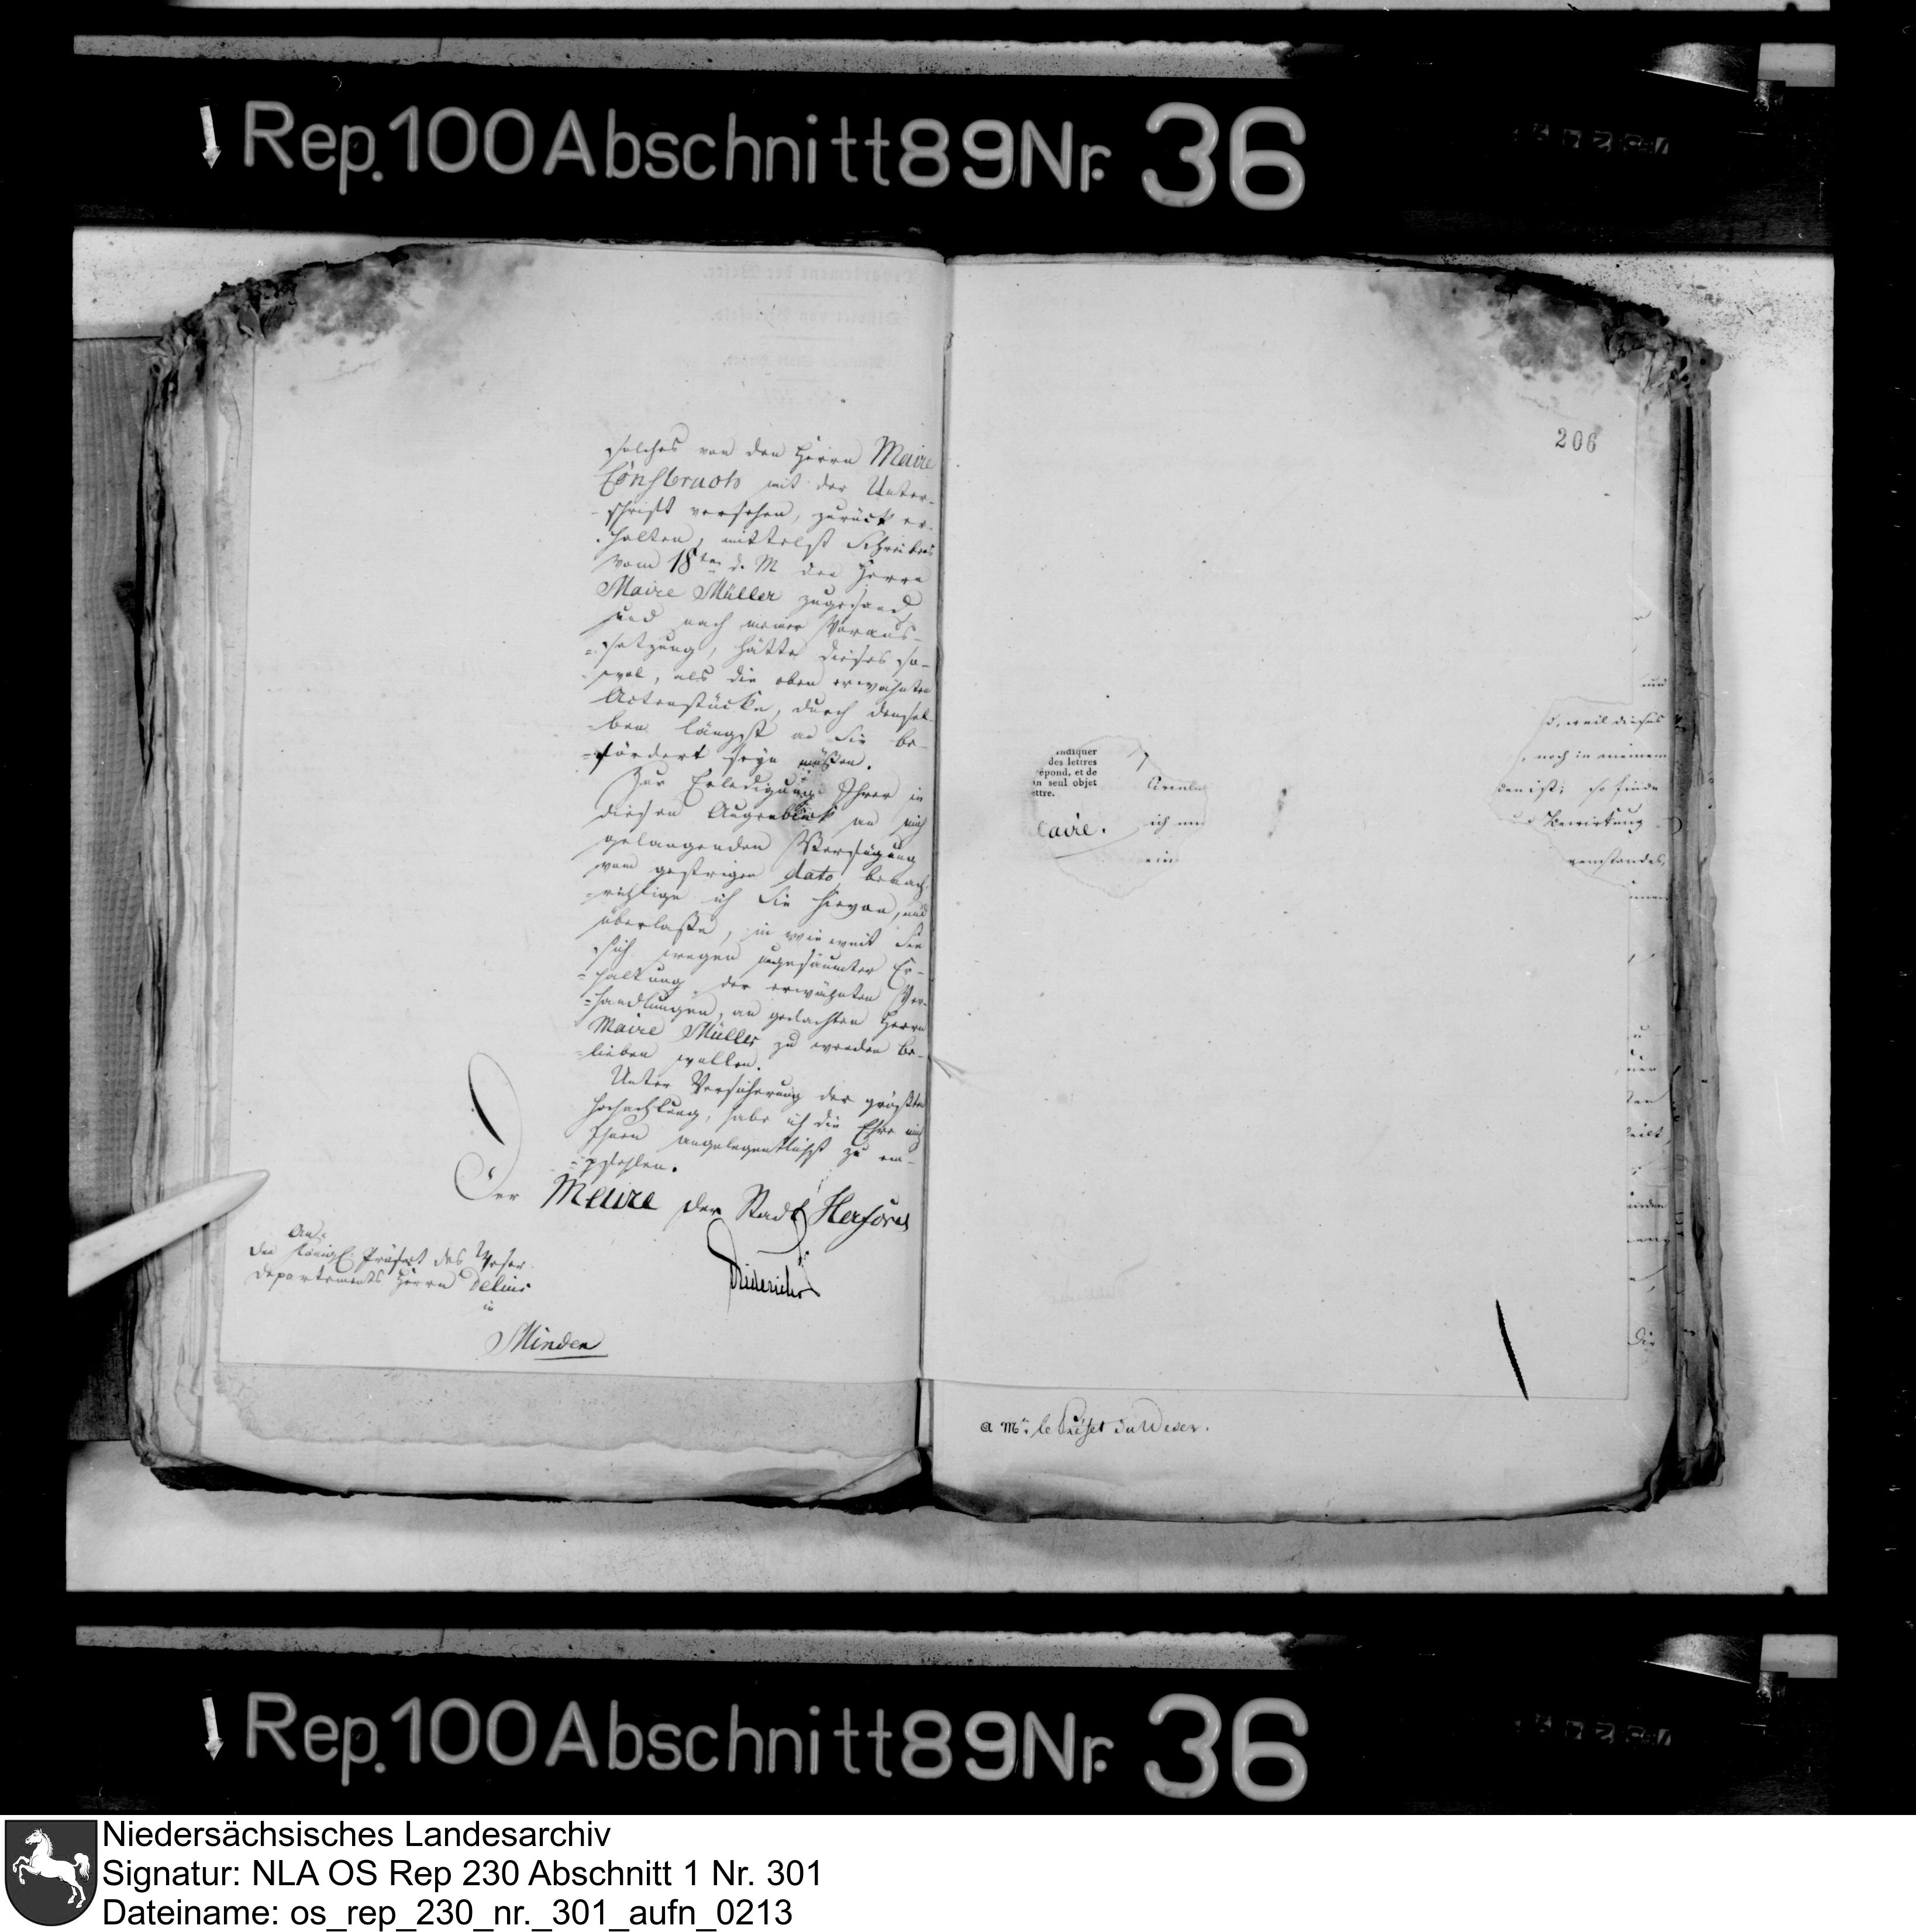 Rep. 100 Abschnitt 89 Nr. 36
solches von den Herrn Maire
Consbruch mit der Unter-
-schrift versehen, zurück er-
-halten, mittelst Schreibens
vom 18ten d. M den Herrn
Maire Müller zugesand
und nach meiner Voraus-
-setzung, hätte dieses so-
-wol, als die oben erwähnten
Actenstücke, durch densel-
-ben längst an Sie be-
-fördert seyn müßen.
Zur Erledigung Ihrer in
diesen Augenblick an mich
gelangenden Verfügung
vom gestrigen dato benach-
-richtige ich Sie hievon, und
überlaße, in wie weit Sie
sich wegen ungesäumter Er-
-haltung der erwähnten Ver-
-handlungen, an gedachten Herrn
Maire Müller zu wenden be-
-lieben wollen.
Unter Versicherung der größten
Hochachtung, habe ich die Ehre mich
Ihnen angelegentlichst zu em-
-pfehlen.
Der Maire der Stadt Herford
Diederichs
An
den Königl. Präfect des Weser
Departements Herrn Delius
in
Minden
206
indiquer
des lettres
répond, et de
un seul objet
ettre.
ich
ein
und
d, weil dieses
, noch in meinem
den ist; so finde
und Bewirkung
genstandes,
Die
a Mr. le Préfet du Weser.
Rep. 100 Abschnitt 89 Nr. 36
Niedersächsisches Landesarchiv
Signatur: NLA OS Rep 230 Abschnitt 1 Nr. 301
Dateiname: os_rep_230_nr._301_aufn_0213